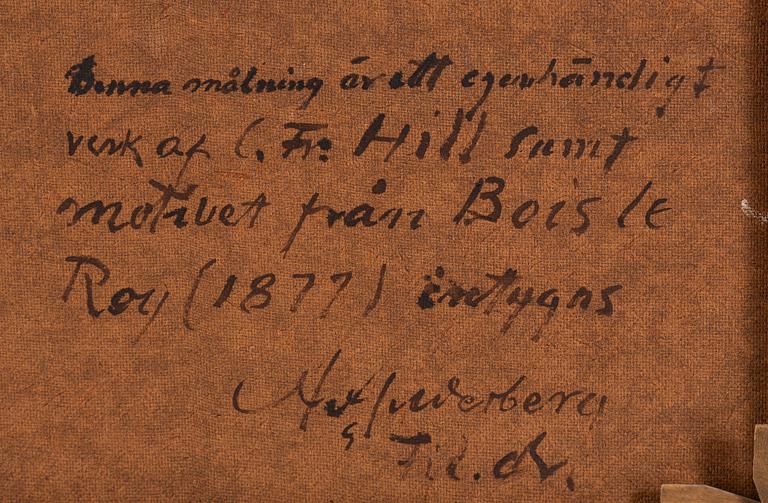 Denna målning är ett egenhändigt
verk af C. Fr. Hill samt
motivet från Bois le
Roy (1877) intygas
Fil. dr.